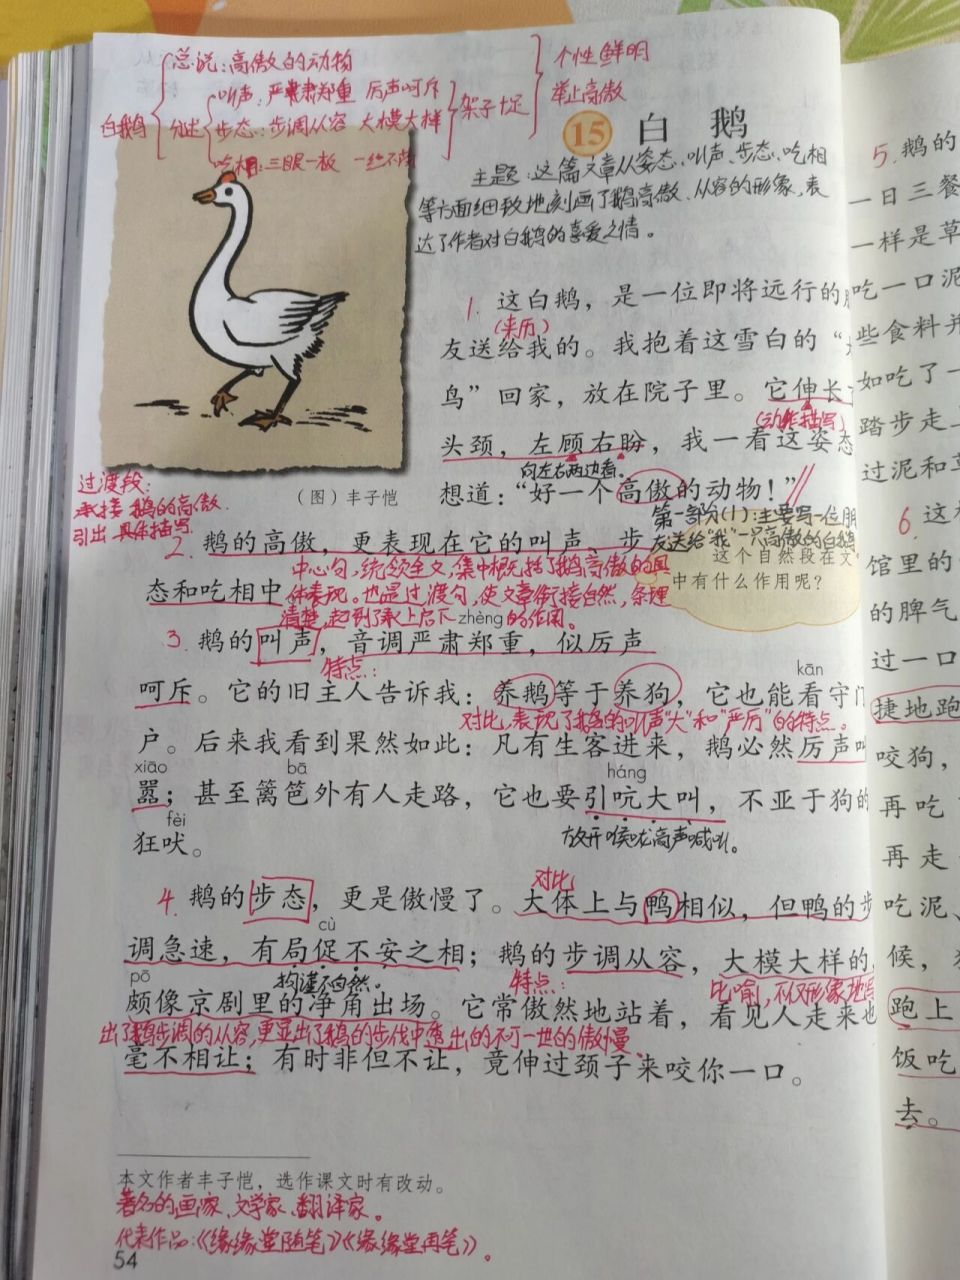 总说：高傲的动物
白鹅
分述
叫声：严肃郑重 厉声呵斥
步态：步调从容 大模大样
吃相：三眼一板 一丝不苟
架子十足
个性鲜明
举止高傲
15 白 鹅
主题：这篇文章从姿态、叫声、步态、吃相
等方面细致地刻画了鹅高傲、从容的形象，表
达了作者对白鹅的喜爱之情。
1. 这白鹅，是一位即将远行的
(来历)
友送给我的。我抱着这雪白的“
鸟”回家，放在院子里。它伸长
(动作描写)
头颈，左顾右盼，我一看这姿态
向左右两边看。
想道：“好一个高傲的动物！”
（图）丰子恺
过渡段：
承接 鹅的高傲.
引出 具体描写
第一部分(1)：主要写一位朋
友送给“我”一只高傲的白鹅
这个自然段在文
中有什么作用呢？
2. 鹅的高傲，更表现在它的叫声、步
中心句，统领全文，集中概括了鹅高傲的具
态和吃相中
体表现。也是过渡句，使文章衔接自然，条理
清楚，起到了承上启下的作用。
zhèng
3. 鹅的叫声，音调严肃郑重，似厉声
特点：
kān
呵斥。它的旧主人告诉我：养鹅等于养狗，它也能看守门
对比，表现了鹅的叫声“大”和“严厉”的特点。
户。后来我看到果然如此：凡有生客进来，鹅必然厉声叫
xiāo bā háng
嚣；甚至篱笆外有人走路，它也要引吭大叫，不亚于狗的
fèi
狂吠。
放开喉咙高声喊叫。
对比
4. 鹅的步态，更是傲慢了。大体上与鸭相似，但鸭的步
cù
调急速，有局促不安之相；鹅的步调从容，大模大样的
pō
拘谨不自然。
特点：
比喻，不仅形象地写
颇像京剧里的净角出场。它常傲然地站着，看见人走来也
出了鹅步调的从容，更显出了鹅的步伐中透出的不可一世的傲慢。
毫不相让；有时非但不让，竟伸过颈子来咬你一口。
本文作者丰子恺，选作课文时有改动。
著名的画家、文学家、翻译家。
代表作品：《缘缘堂随笔》《缘缘堂再笔》。
54
5. 鹅的
一日三餐
一样是草
吃一口泥
些食料并
如吃了一
踏步走上
过泥和草
6. 这
馆里的
的脾气
过一口
捷地跑
咬狗，
再吃
再走
吃泥、
候，
跑上
饭吃
去。